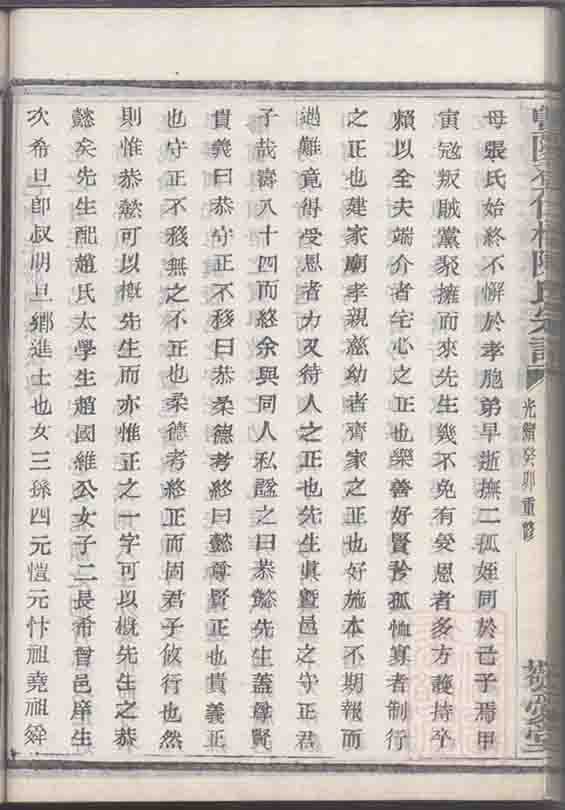 母張氏始終不懈於孝胞弟早逝撫二孤姪同於己子焉甲
寅冦叛賊黨聚擁而來先生幾不免有受恩者多方護持卒
賴以全夫端介者宅心之正也樂善好賢矜孤恤寡者制行
之正也建家廟孝親慈幼者齊家之正也好施本不期報而
遇難竟得受恩者力又待人之正也先生眞暨邑之守正君
子哉濤八十四而終余與同人私諡之曰恭懿先生蓋尊賢
貴義曰恭守正不移曰恭柔德考終曰懿尊賢正也貴義正
也守正不移無之不正也柔德考終正而固君子攸行也然
則惟恭懿可以概先生而亦惟正之一字可以概先生之恭
懿矣先生配趙氏太學生趙國維公女子二長希曾邑庠生
次希旦卽叔明旦鄉進士也女三孫四元愷元忭祖堯祖舜
陳氏宗譜
光緒癸卯重修